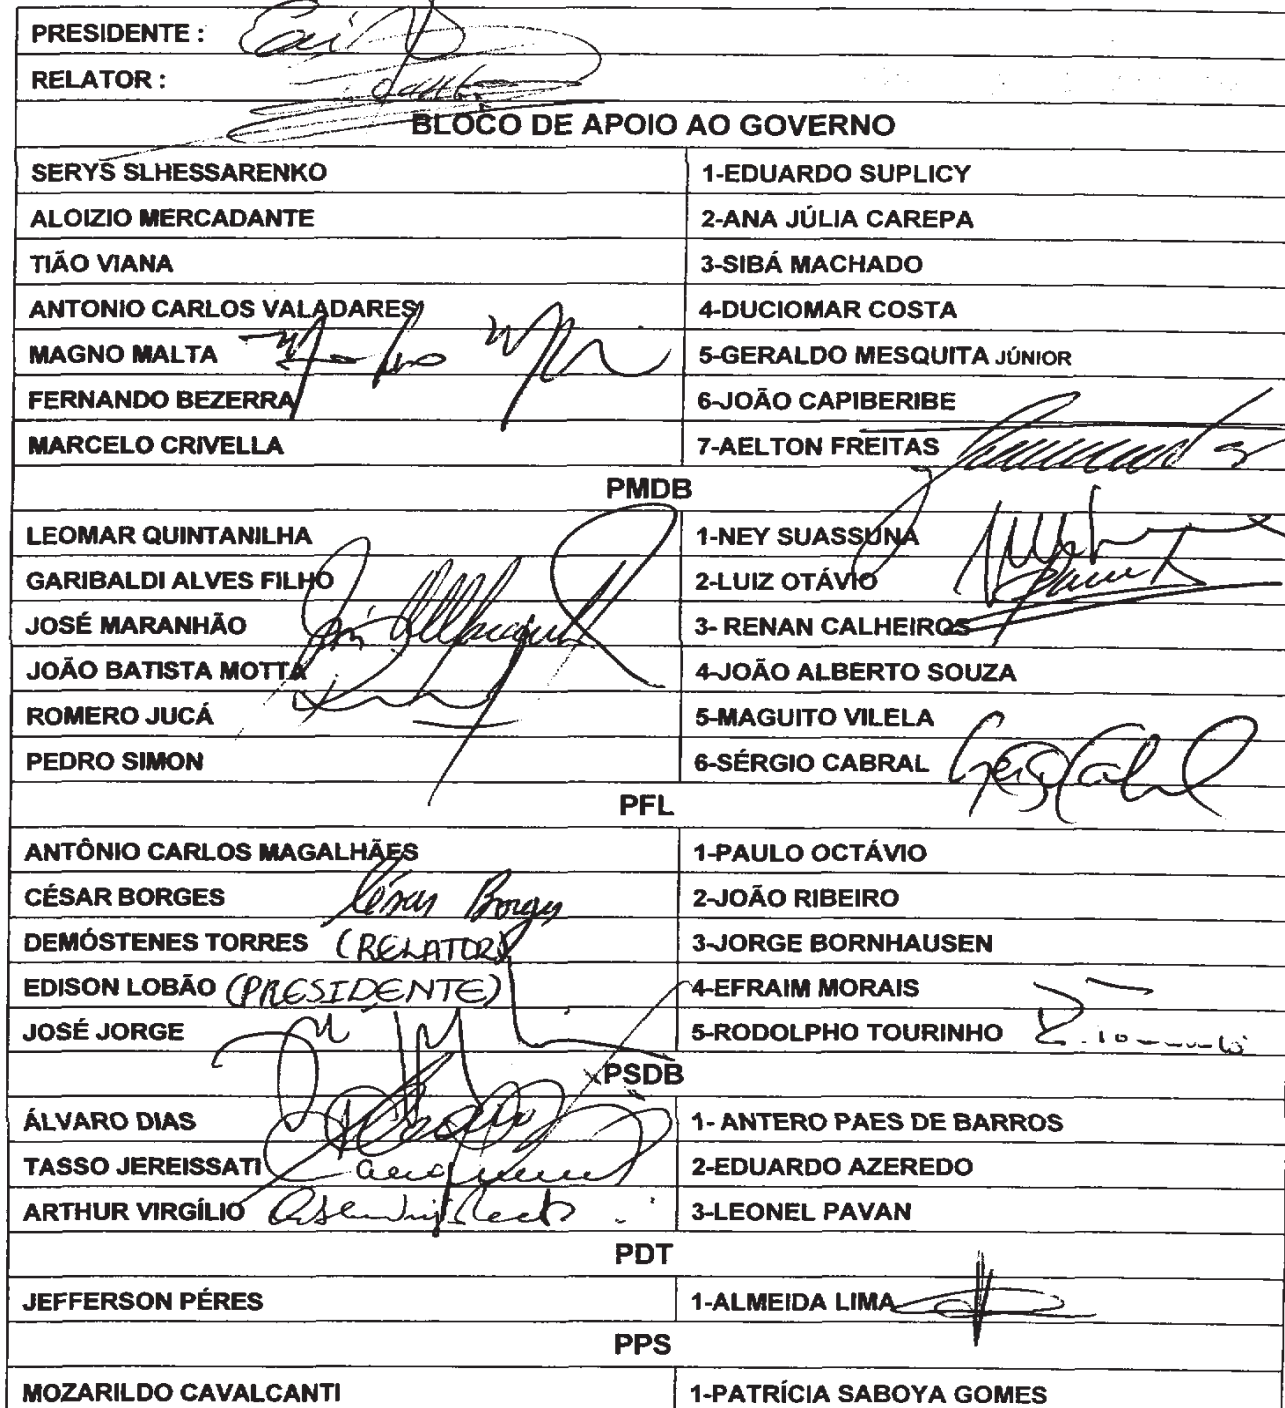 PRESIDENTE :
RELATOR :
BLOCO DE APOIO AO GOVERNO
SERYS SLHESSARENKO 1-EDUARDO SUPLICY
ALOIZIO MERCADANTE 2-ANA JÚLIA CAREPA
TIÃO VIANA 3-SIBÁ MACHADO
ANTONIO CARLOS VALADARES 4-DUCIOMAR COSTA
MAGNO MALTA 5-GERALDO MESQUITA JÚNIOR
FERNANDO BEZERRA 6-JOÃO CAPIBERIBE
MARCELO CRIVELLA 7-AELTON FREITAS
PMDB
LEOMAR QUINTANILHA 1-NEY SUASSUNA
GARIBALDI ALVES FILHO 2-LUIZ OTÁVIO
JOSÉ MARANHÃO 3- RENAN CALHEIROS
JOÃO BATISTA MOTTA 4-JOÃO ALBERTO SOUZA
ROMERO JUCÁ 5-MAGUITO VILELA
PEDRO SIMON 6-SÉRGIO CABRAL
PFL
ANTÔNIO CARLOS MAGALHÃES 1-PAULO OCTÁVIO
CÉSAR BORGES César Borges 2-JOÃO RIBEIRO
DEMÓSTENES TORRES (RELATOR) 3-JORGE BORNHAUSEN
EDISON LOBÃO (PRESIDENTE) 4-EFRAIM MORAIS
JOSÉ JORGE 5-RODOLPHO TOURINHO
PSDB
ÁLVARO DIAS 1- ANTERO PAES DE BARROS
TASSO JEREISSATI 2-EDUARDO AZEREDO
ARTHUR VIRGÍLIO 3-LEONEL PAVAN
PDT
JEFFERSON PÉRES 1-ALMEIDA LIMA
PPS
MOZARILDO CAVALCANTI 1-PATRÍCIA SABOYA GOMES